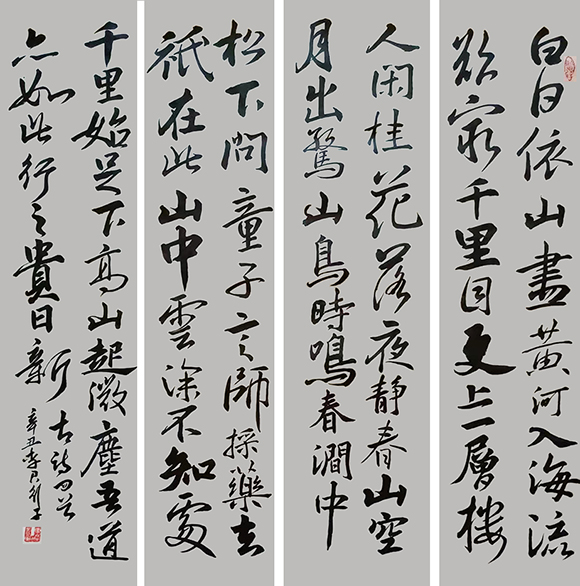 白日依山盡黃河入海流
欲窮千里目更上一層樓
人閑桂花落夜靜春山空
月出驚山鳥時鳴春澗中
松下問童子言師採藥去
祇在此山中雲深不知處
千里始足下高山起微塵吾道
亦如此行之貴日新 古詩四首
辛丑李